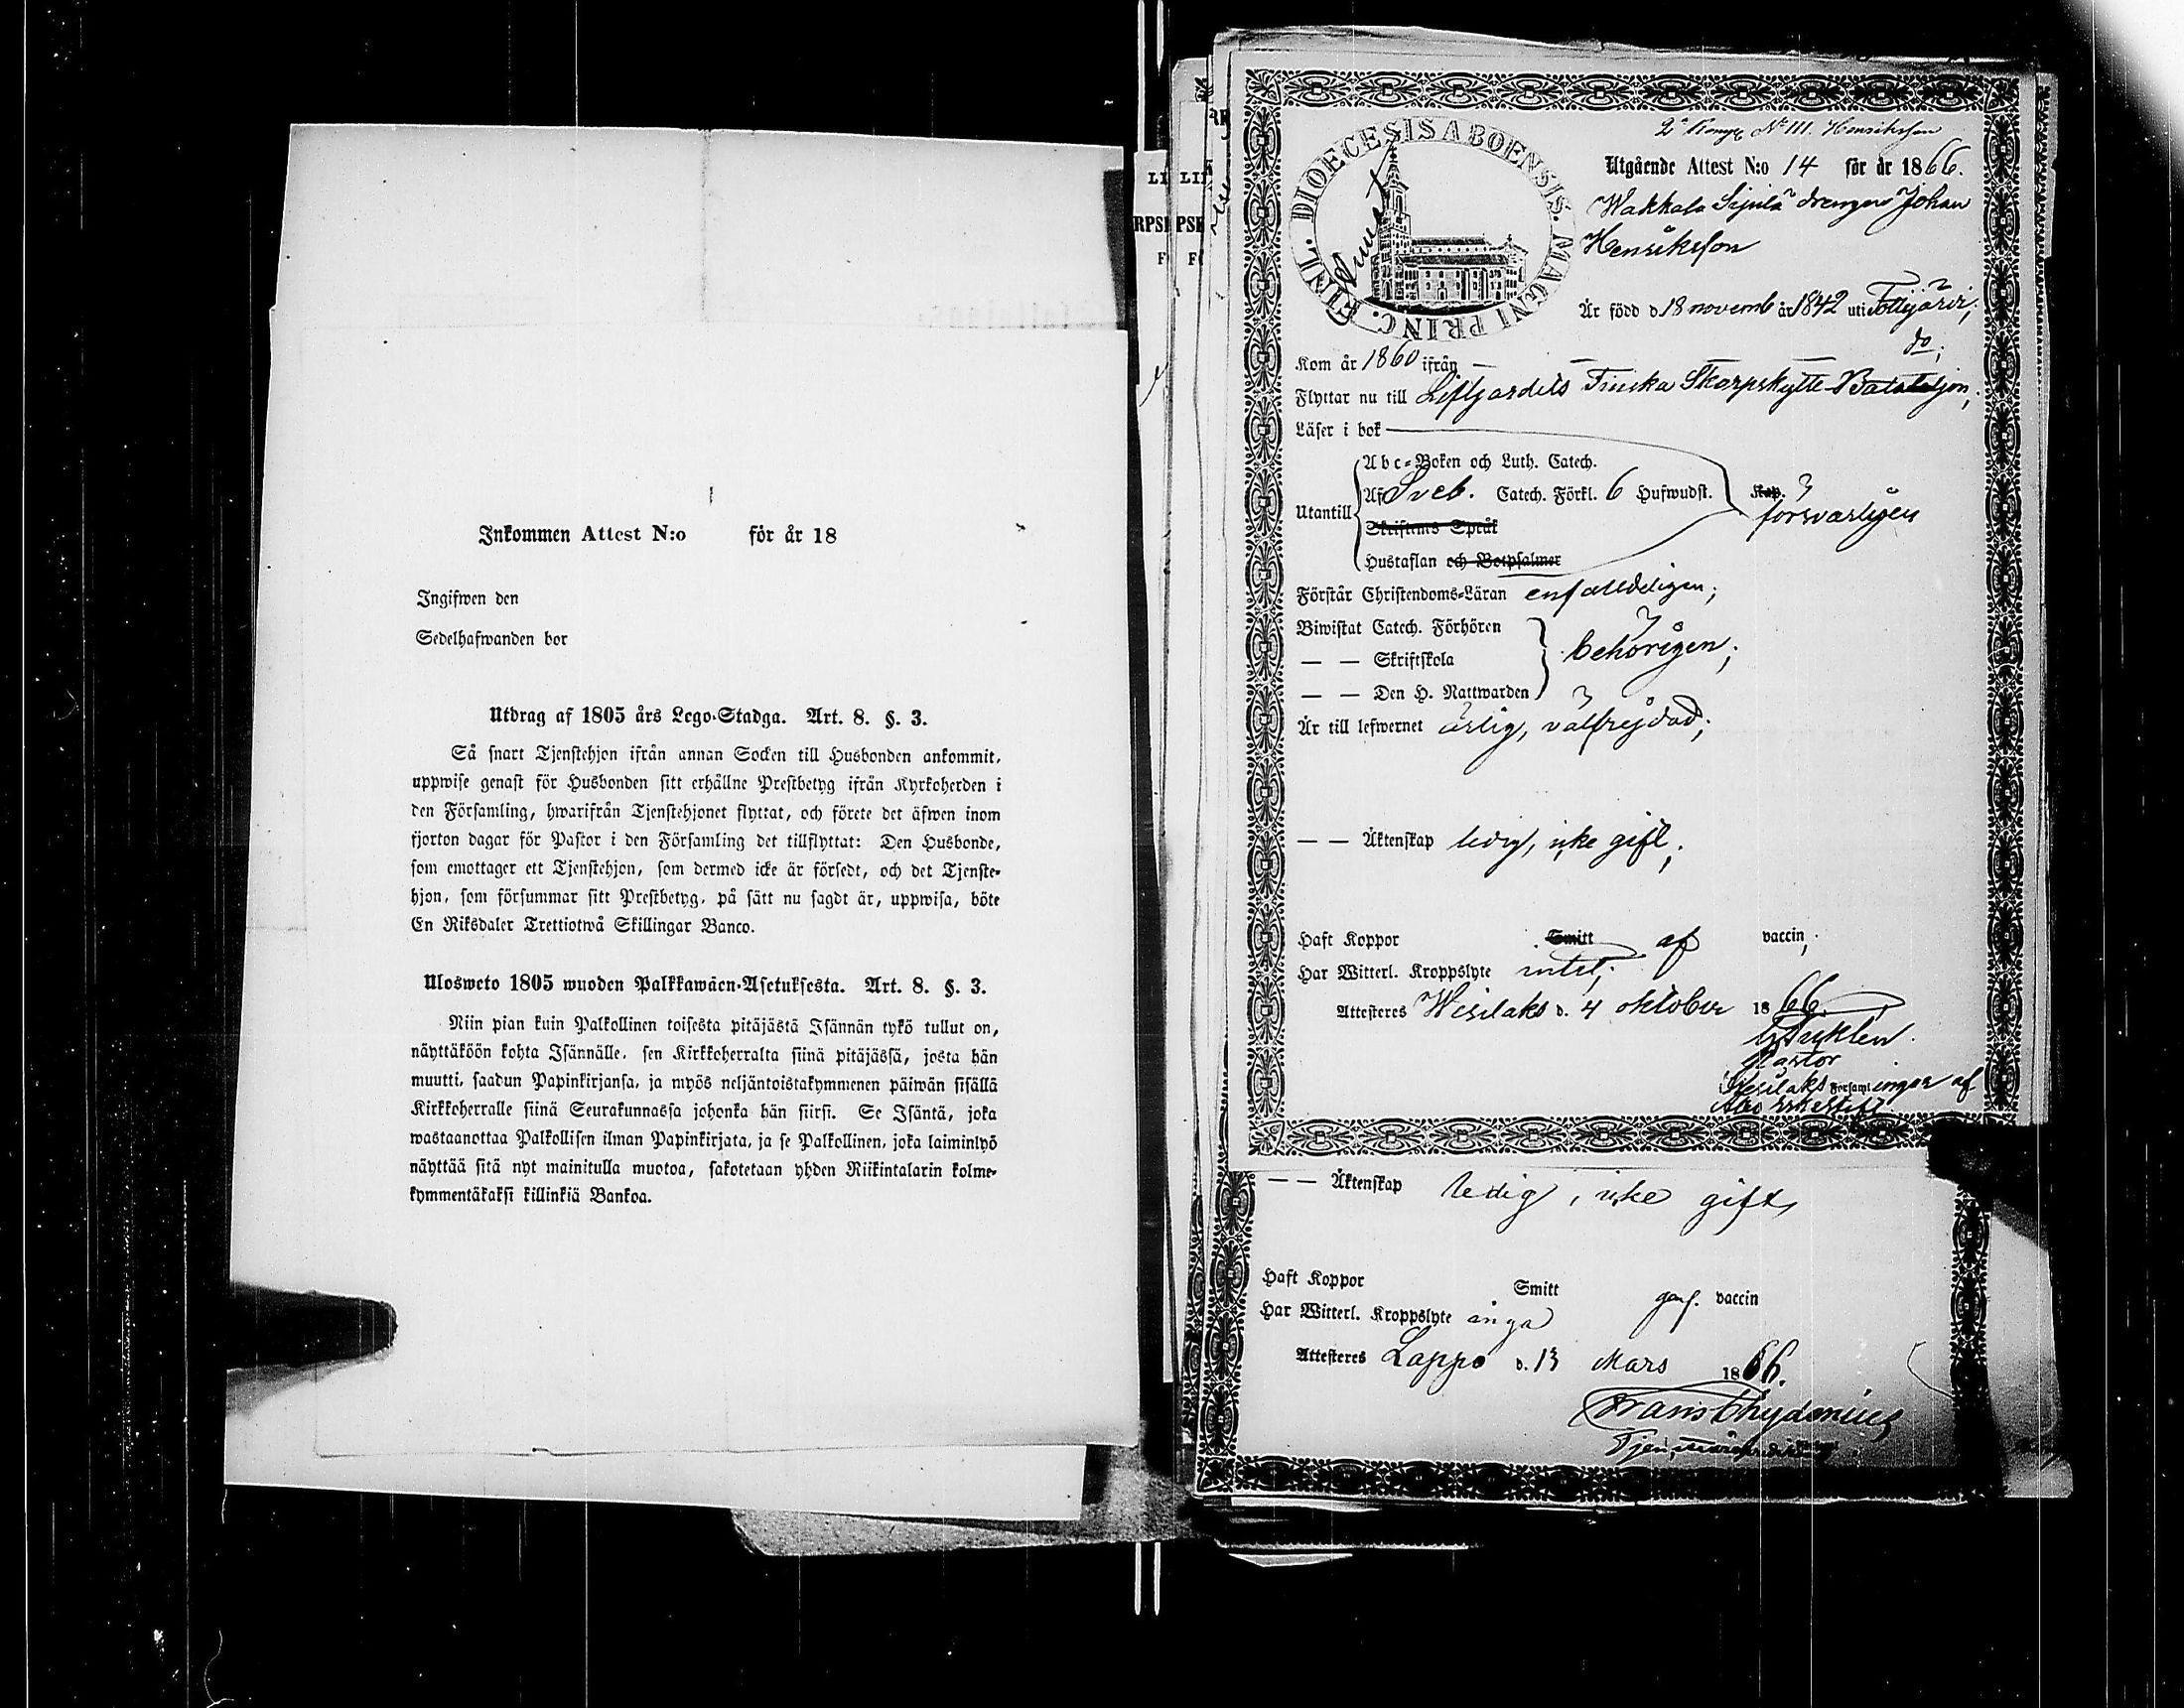 Inkommen Attest N:o för år 18
Ingifwen den
Sedelhafwanden bor
Utdrag af 1805 års Lego-Stadga. Art. 8. §. 3.
Så snart Tjenstehjon ifrån annan Socken till Husbonden ankommit,
uppwise genast för Husbonden sitt erhållne Prestbetyg ifrån Kyrkoherden i
den Församling, hwarifrån Tjenstehjonet flyttat, och förete det äfwen inom
fjorton dagar för Pastor i den Församling det tillflyttat: Den Husbonde,
som emottager ett Tjenstehjon, som dermed icke är försedt, och det Tjenste-
hjon, som försummar sitt Prestbetyg, på sätt nu sagdt är, uppwisa, böte
En Riksdaler Trettiotwå Skillingar Banco.
Ulosweto 1805 wuoden Palkkawäen-Asetuksesta. Art. 8. §. 3.
Niin pian kuin Palkollinen toisesta pitäjästä Isännän tykö tullut on,
näyttäköön kohta Isännälle, sen Kirkkoherralta siinä pitäjässä, josta hän
muutti, saadun Papinkirjansa, ja myös neljäntoistakymmenen päiwän sisällä
Kirkkoherralle siinä Seurakunnassa johonka hän siirsi. Se Isäntä, joka
wastaanottaa Palkollisen ilman Papinkirjata, ja se Palkollinen, joka laiminlyö
näyttää sitä nyt mainitulla muotoa, sakotetaan yhden Riikintalarin kolme-
kymmentäkaksi killinkiä Bankoa.
N:o 111. Henriksson
DIOECESIS ABOENSIS. MAGNI PRINC. FINL.
Utgående Attest N:o 14 för år 1866.
Wakkala Sipilä drängen Johan
Henriksson
Är född d. 18 novemb år 1842 uti Tottijärvi;
do;
Kom år 1860 ifrån —
Flyttar nu till Lifgardets Finska Skarpskytte-Bataljon;
Läser i bok
Abc-Boken och Luth. Catech.
Utantill Af Sveb. Catech. Förkl. 6 Hufwudst. Kap.
försvarligen
Skriftens Språk
Hustaflan och Botpsalmer
Förstår Christendoms-Läran enfaldeligen;
Biwistat Catech. Förhören
— — Skriftskola behörigen;
— — Den H. Nattwarden
Är till lefwernet ärlig, välfrejdad;
— — Äktenskap ledig, icke gift;
Haft Koppor Smitt af vaccin;
Har Witterl. Kroppslyte intet;
Attesteras Wesilaks d. 4 oktober 1866.
Pastor
Wesilaks Församlingar af
Åbo Erkestift
— — Äktenskap ledig, icke gift,
Haft Koppor Smitt gm. vaccin
Har Witterl. Kroppslyte inga
Attesteras Lappo d. 13 Mars 1866.
Frans Chydenius